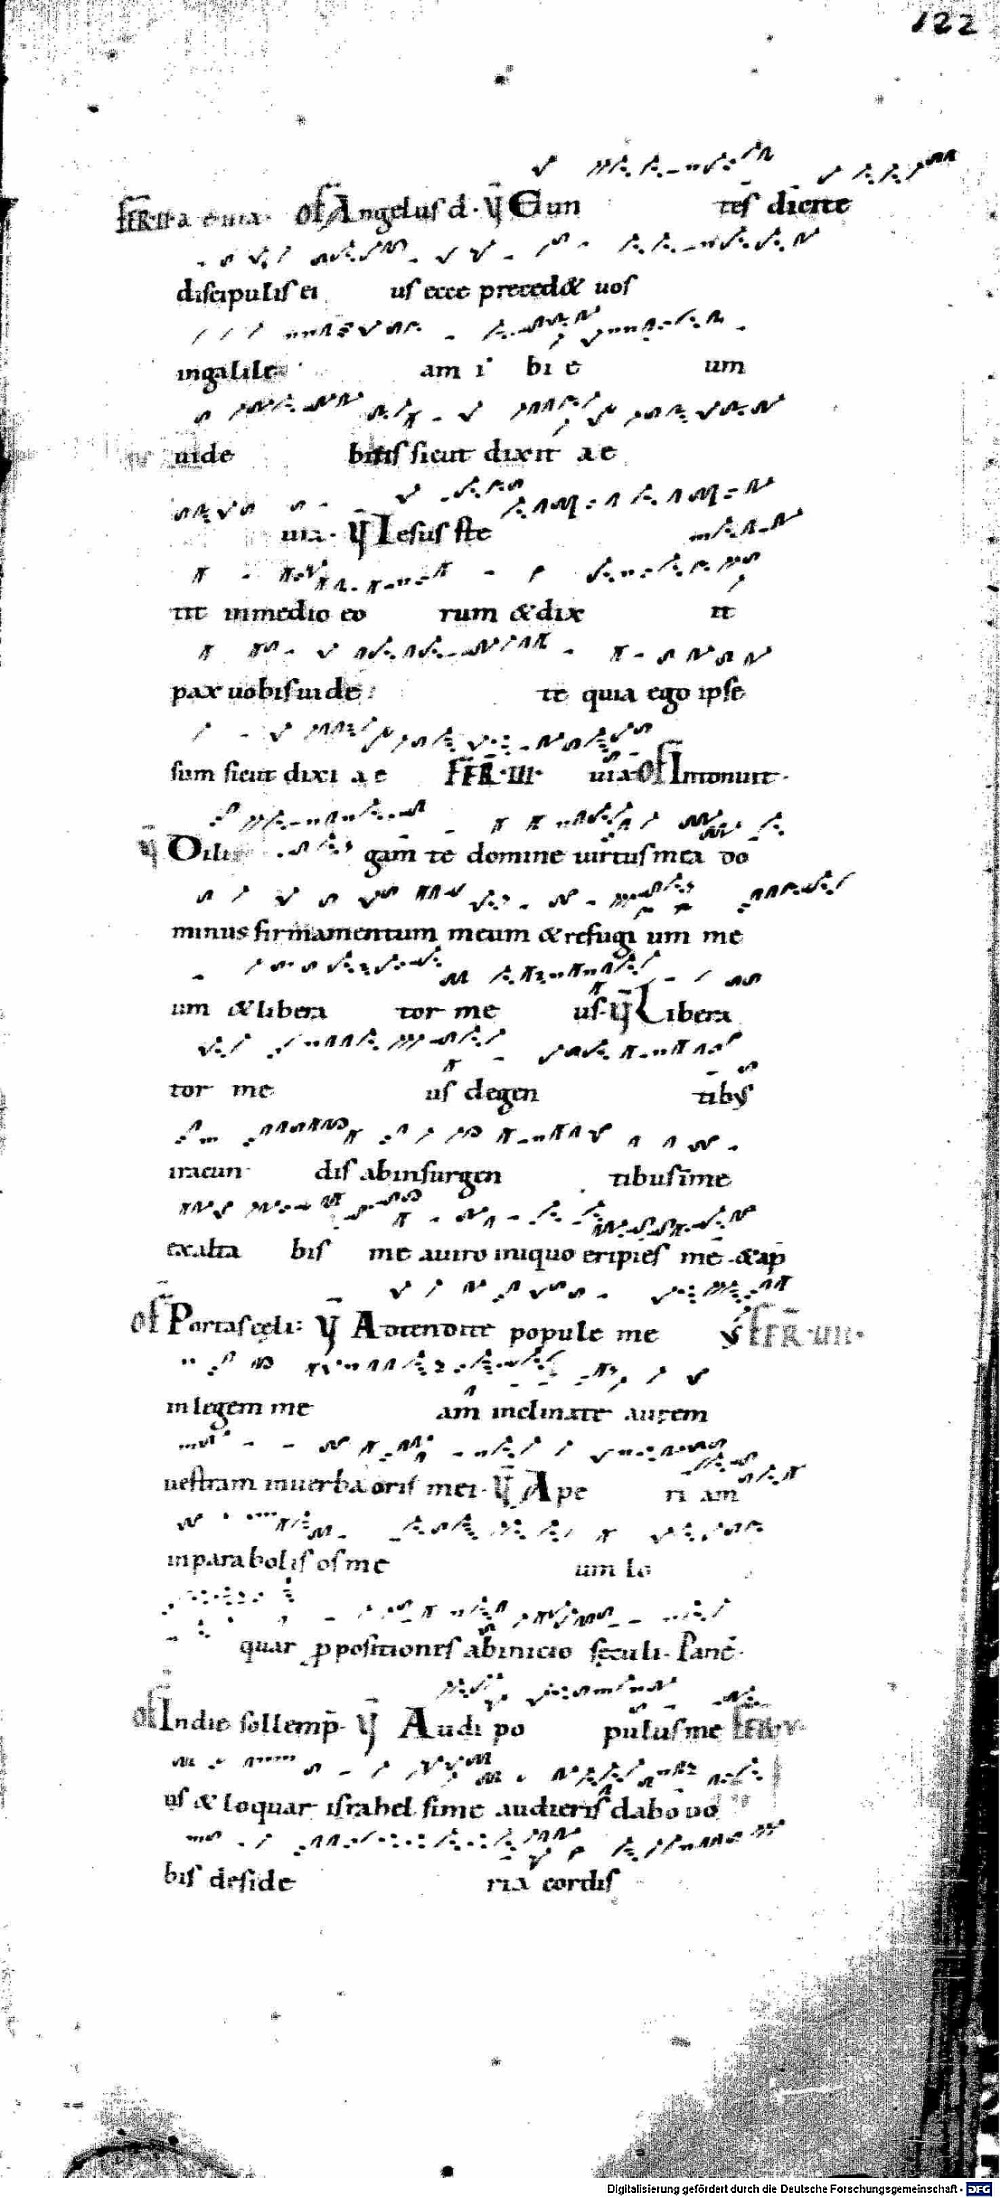 122
FER·II·a e uıa· OF Angelus d· ℣ Eun tes dicite
discipulis ei us ecce preced& uos
ingalile am i bi e um
uide bitis sicut dixit ae
uia· ℣ Iesus ste
tit inmedio eo rum &dix it
pax uobis uide te quia ego ipse
sum sicut dixi ae FER·III· uia OF Intonuit·
℣ Dili gam te domine uirtus mea do
minus firmamentum meum &refugi um me
um &libera tor me us·℣ Libera
tor me us degen tibus
iracun dis abinsurgen tibus ime
exalta bis me auiro iniquo eripies me·&ap
OF Portas celi: ℣ Adtendite popule me FER·IIII·
inlegem me am inclinate aurem
uestram inuerba oris mei·℣ Ape ri am
inparabolis os me um lo
quar ppositiones abinicio seculi· Pane·
OF Indie sollemp· ℣ Audi po pulus me FER·V·
us &loquar israhel sime audieris dabo uo
bis deside ria cordis
Digitalisierung gefördert durch die Deutsche Forschungsgemeinschaft - DFG